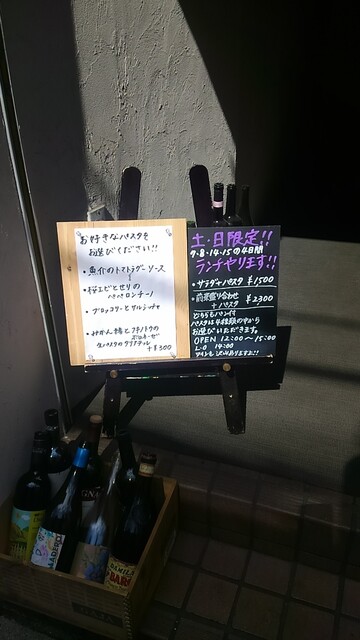 お好きなパスタを
お選びください!!
・魚介のトマトラグーソース
・桜エビとセリの
ペペロンチーノ
・ブロッコリーとサルシッチャ
・みかん鯛とフキノトウの
生パスタのタリアテッレ
+¥300
土・日限定!!
7・8・14・15の4日間
ランチやります!!
・サラダ+パスタ ¥1500
・前菜盛り合わせ
+パスタ ¥2300
どちらもパン付
パスタは4種類の中から
お選びいただきます。
OPEN 12:00〜15:00
L.O 14:00
ワインも沢山あります!!